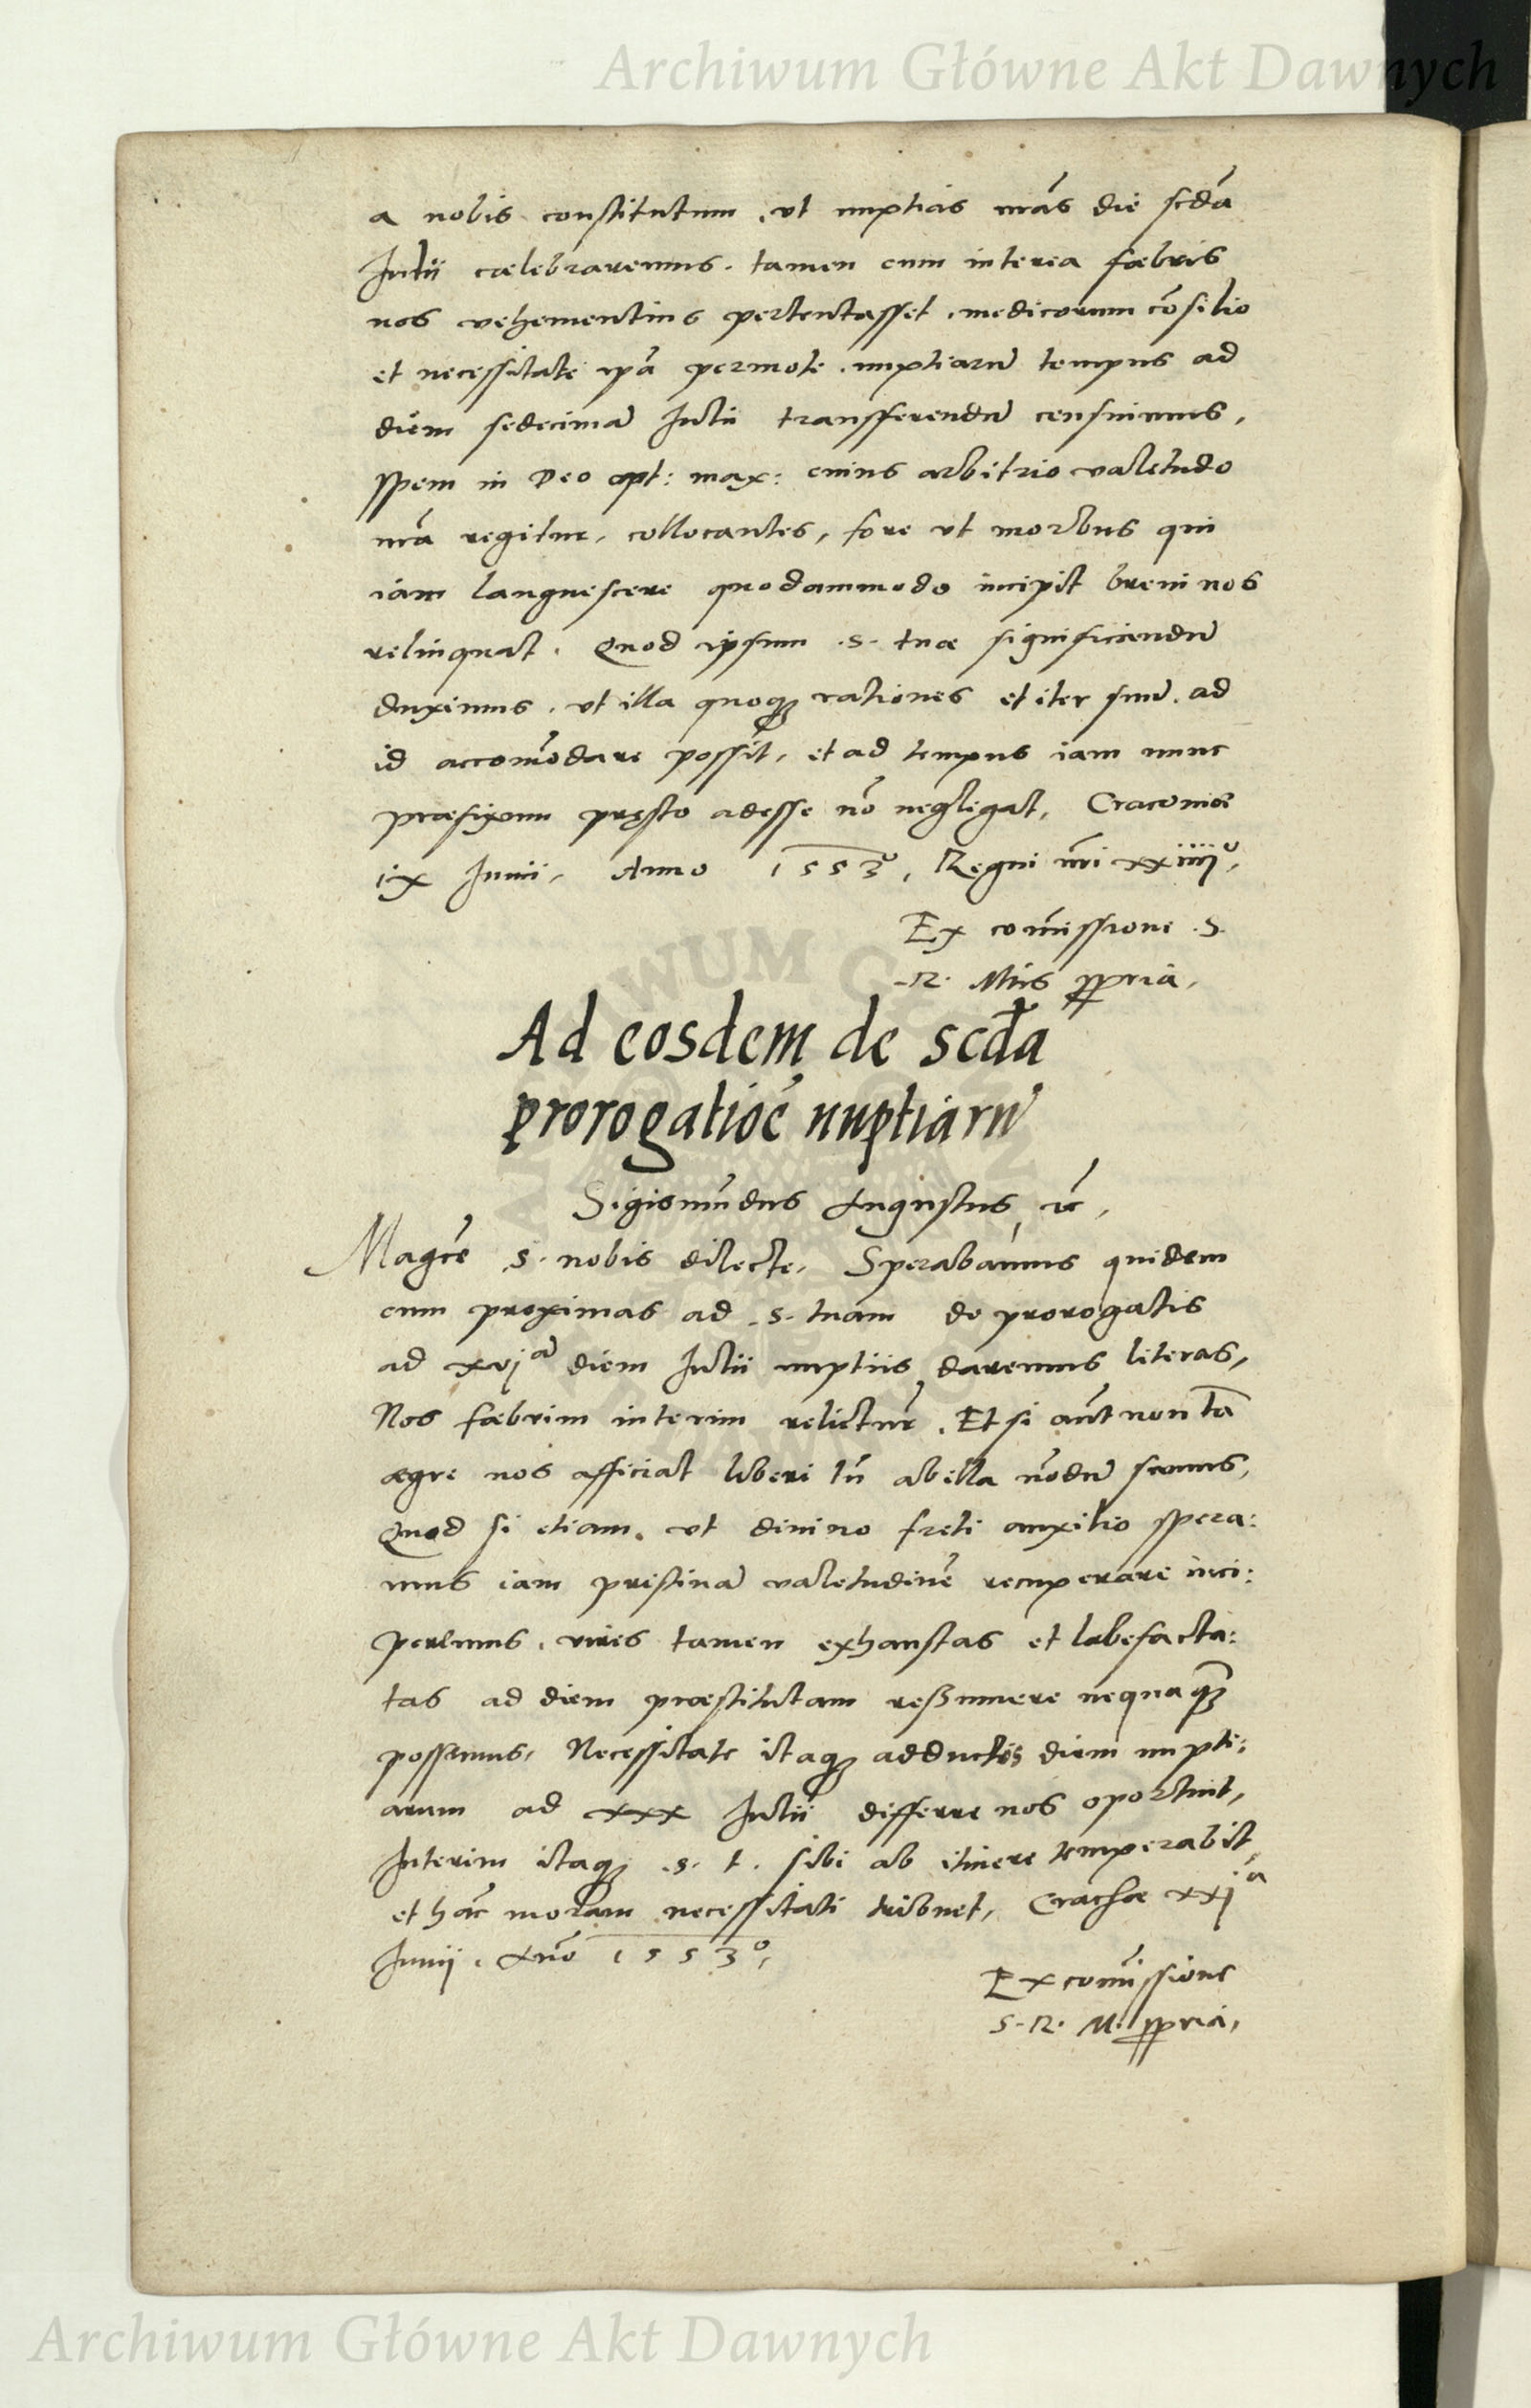 Archiwum Główne Akt Dawnych
a nobis constitutum, ut nuptias nr̃as die scd̃a
Julii cælebraremus. tamen cum interea fæbris
nos vehementius pertentasset, medicorum cõsilio
et necessitate ip̃a permoti, nuptiarũ tempus ad
diem sedecimã Julii transfferendũ censuimus,
spem in Deo opt: max: cuius arbitrio valetudo
nr̃a regitur, collocantes, fore ut morbus qui
iam languescere quodammodo incipit brevi nos
relinquat. Quod ipsum .S. tuæ significandũ
duximus, ut illa quoq; rationes et iter suũ ad
id accom̃odare possit, et ad tempus iam nunc
præfixum pręsto adesse nõ neglegat, Cracoviæ
ix Junii, Anno 1553º, Regni nr̃i xxiiijº,
Ex com̃issione .S.
.R. Mtis ppria,
Ad eosdem de scd̃a
prorogatiõe nuptiarũ
Sigismũdus Augustus, etc,
Magce .S. nobis dilecte, Sperabamus quidem
cum proximas ad .S. tuam de prorogatis
ad xvjã diem Julii nuptiis daremus literas,
Nos fæbrim interim relictur̃. Et si aũt non tã
ægre nos afficiat liberi tñ ab illa nõdũ sumus,
Quod si etiam, ut divino freti auxilio spera:
mus iam pristinã valetudinẽ recuperare inci:
peremus, vires tamen exhaustas et labefacta:
tas ad diem præstitutam reßumere nequaq̃;
possemus, Necessitate itaq; adductis diem nupti:
arum ad xxx Julii differre nos oportuit,
Interim itaq; .S. t. sibi ab itinere temperabit,
et hãc moram necessitati tribuet, Cracoviæ xxjª
Junij, Añno 1553º,
Ex com̃issione
S. R. M. ppria,
Archiwum Główne Akt Dawnych